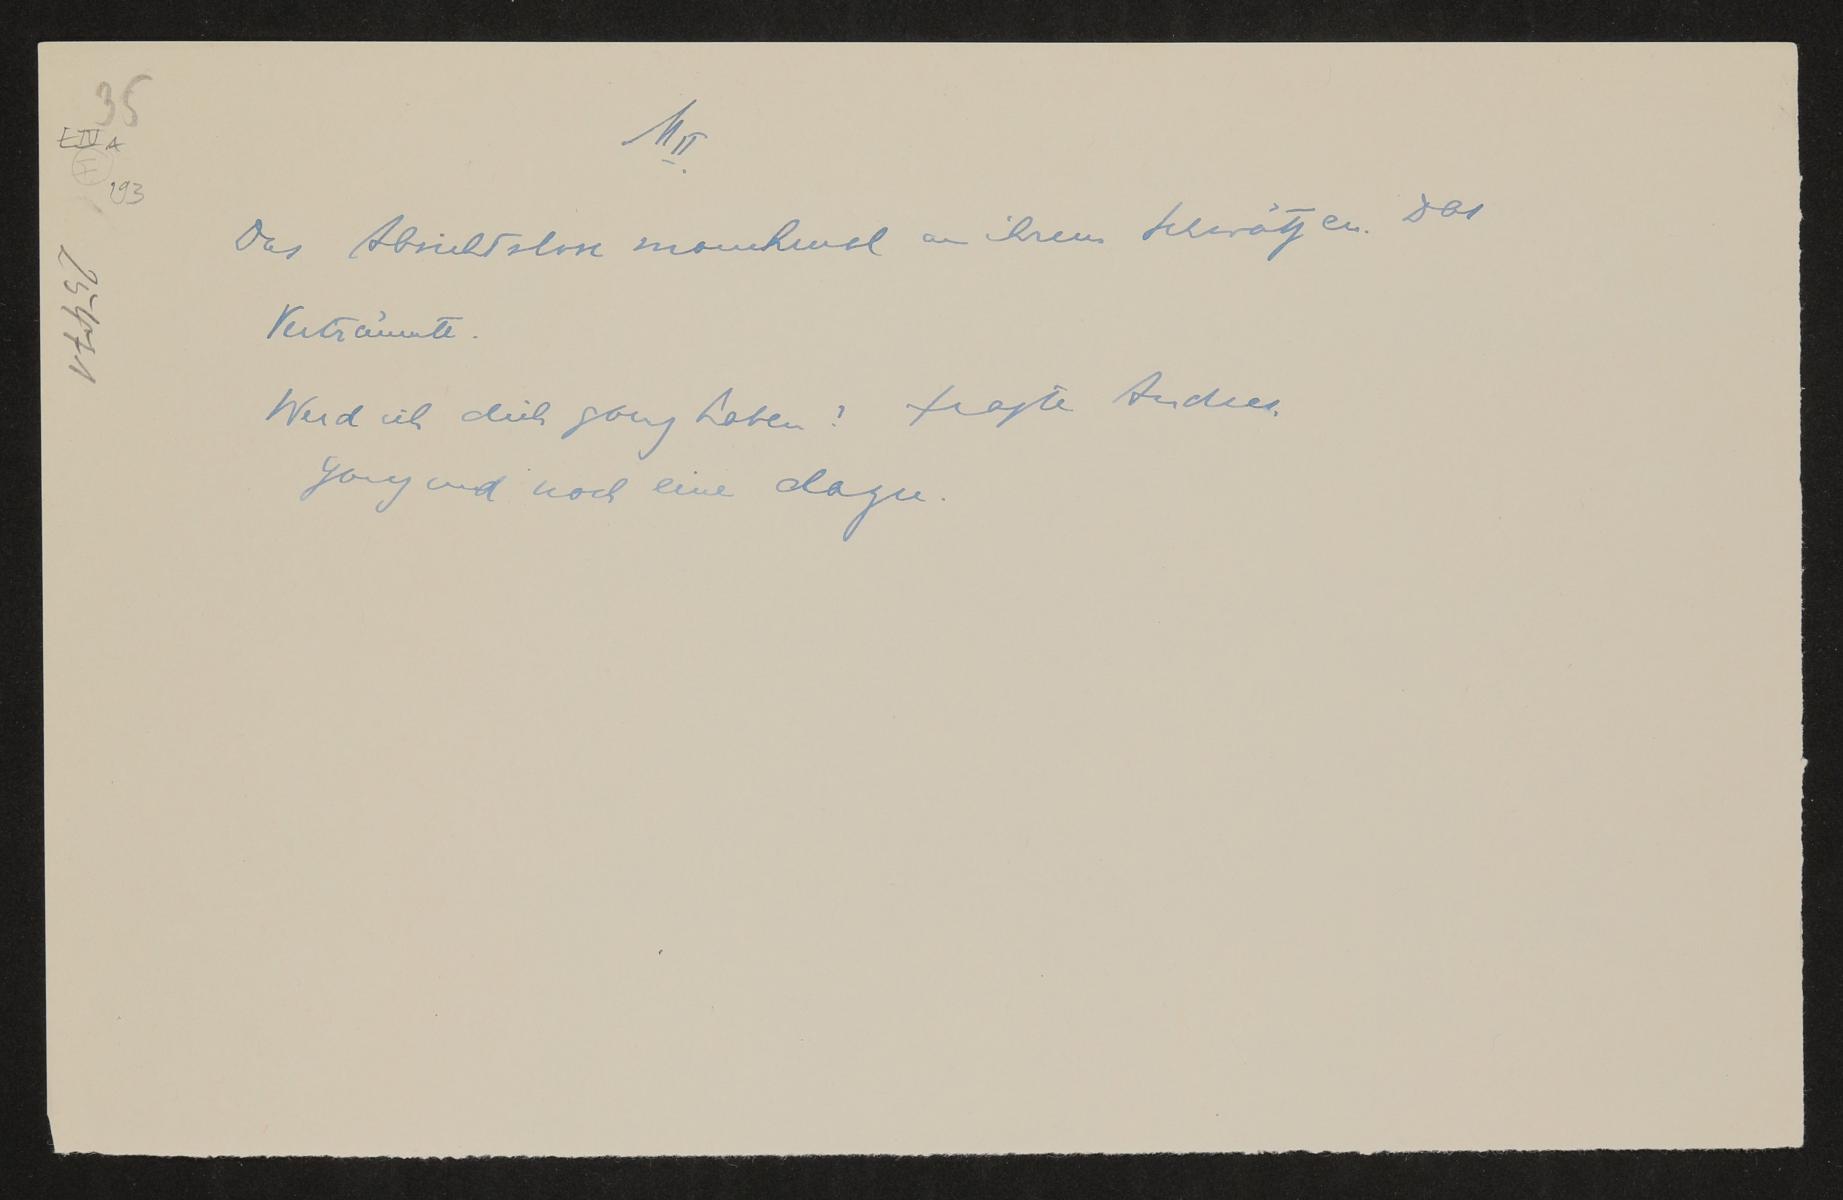 35
E IV A
I
193
254071
M II.
Das Absichtslose manchmal an ihrem Schwätzen. Das
Verträumte.
Werd ich dich ganz haben? fragte Andreas
Ganz und noch eine dazu.